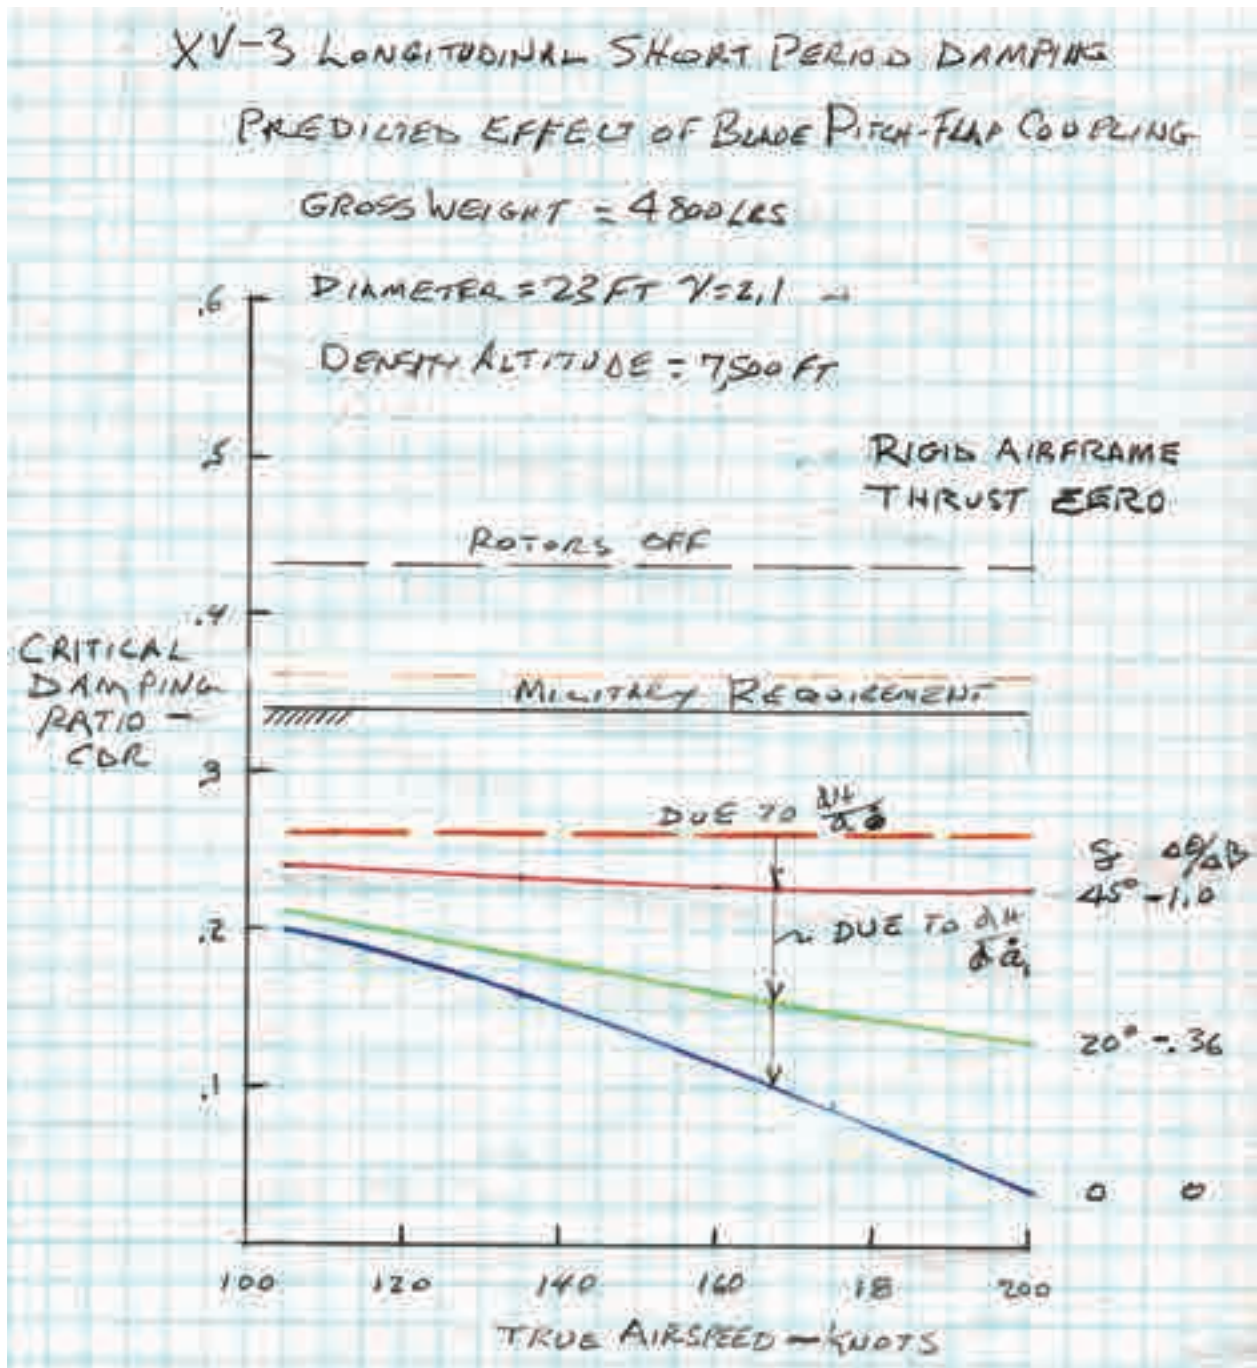 XV-3 LONGITUDINAL SHORT PERIOD DAMPING
PREDICTED EFFECT OF BLADE PITCH-FLAP COUPLING
GROSS WEIGHT = 4800 LBS
DIAMETER = 23 FT γ=2.1
DENSITY ALTITUDE = 7,500 FT
.6
.5
RIGID AIRFRAME
THRUST ZERO
ROTORS OFF
.4
CRITICAL
DAMPING
RATIO -
CDR
MILITARY REQUIREMENT
.3
DUE TO
Δθ/Δβ
45° -1.0
.2
DUE TO
20° -.36
.1
0 0
100 120 140 160 18 200
TRUE AIRSPEED - KNOTS